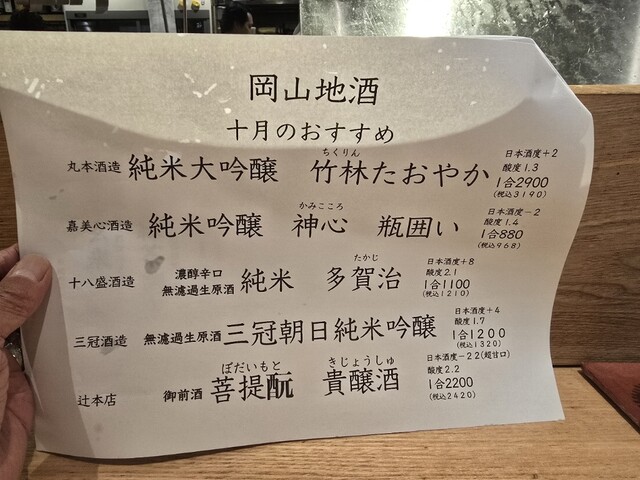 岡山地酒
十月のおすすめ
丸本酒造 純米大吟醸 竹林たおやか
ちくりん
日本酒度+2
酸度1.3
1合2900
(税込3190)
嘉美心酒造 純米吟醸 神心 瓶囲い
かみこころ
日本酒度-2
酸度1.4
1合880
(税込968)
十八盛酒造 濃醇辛口 無濾過生原酒 純米 多賀治
たかじ
日本酒度+8
酸度2.1
1合1100
(税込1210)
三冠酒造 無濾過生原酒 三冠朝日純米吟醸
日本酒度+4
酸度1.7
1合1200
(税込1320)
辻本店 御前酒 菩提酛 貴醸酒
ぼだいもと きじょうしゅ
日本酒度-22(超甘口)
酸度2.2
1合2200
(税込2420)